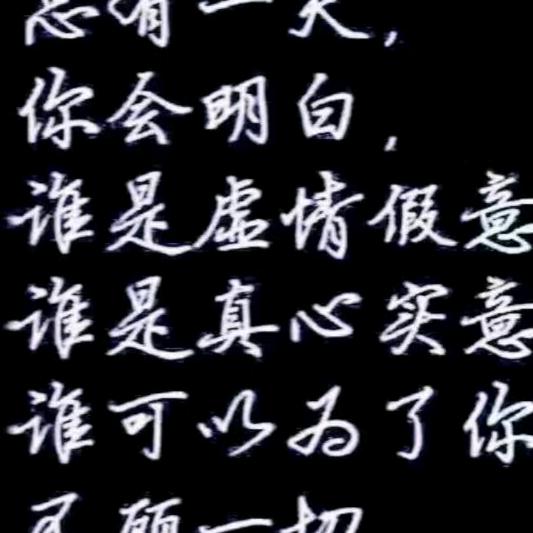 总有一天,
你会明白,
谁是虚情假意
谁是真心实意
谁可以为了你
不顾一切